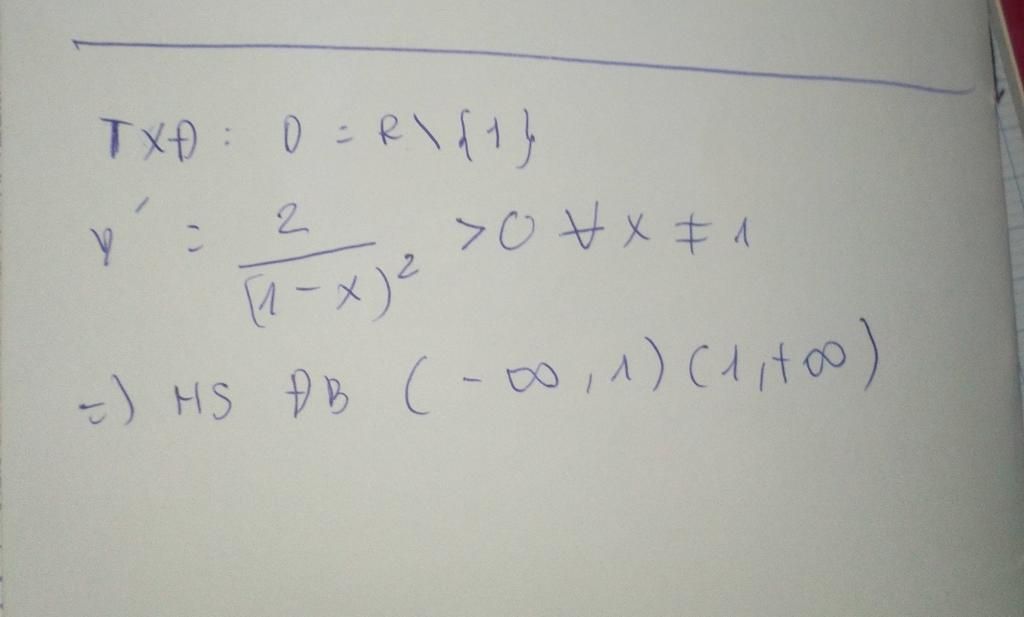 TXĐ: D = R \ {1}
y' = 2/(1-x)² >0 ∀ x ≠ 1
=) HS ĐB (-∞, 1) (1, +∞)